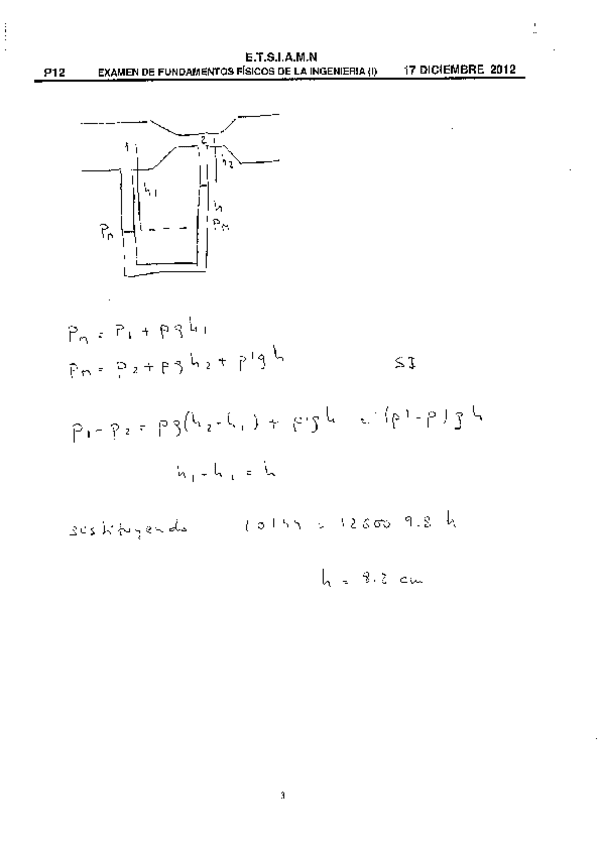 E.T.S.I.A.M.N
P12 EXAMEN DE FUNDAMENTOS FÍSICOS DE LA INGENIERIA (I) 17 DICIEMBRE 2012
1 2
h₂
h₁
h
Pₙ Pₙ
Pₙ = P₁ + ρgh₁
Pₙ = P₂ + ρgh₂ + ρ'gh SI
P₁ - P₂ = ρg(h₂-h₁) + ρ'gh = (ρ'-ρ)gh
h₁ - h₁ = h
sustituyendo 10144 = 12600 9.8 h
h = 8.2 cm
3